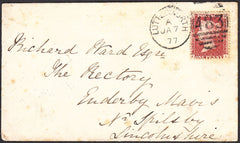 LUTTERWORTH
A
JA 7
77
Richard Ward Esqr
The Rectory
Enderby Mavis
Nr Spilsby
Lincolnshire